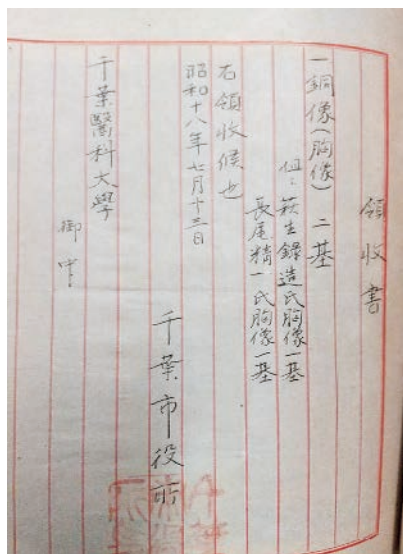 領收書
一銅像(胸像) 二基
但シ萩生錄造氏胸像一基
長尾精一氏胸像一基
右領收候也
昭和十八年七月十三日
千葉市役所
千葉醫科大學
御中